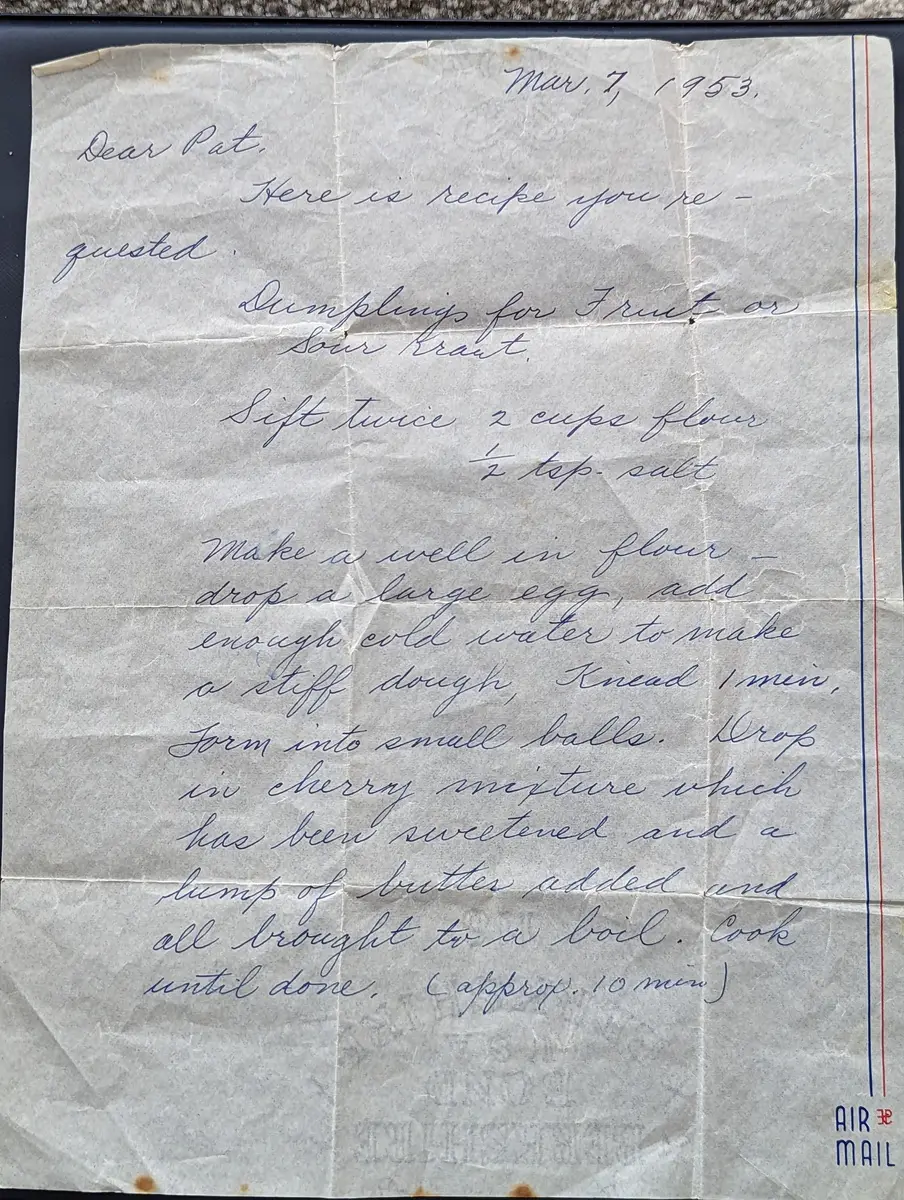 Mar. 7, 1953.
Dear Pat.
Here is recipe you re-
quested.
Dumplings for Fruit or
Sour Kraut.
Sift twice 2 cups flour
1/2 tsp. salt
Make a well in flour -
drop a large egg, add
enough cold water to make
a stiff dough, Knead 1 min,
Form into small balls. Drop
in cherry mixture which
has been sweetened and a
lump of butter added and
all brought to a boil. Cook
until done. (approx. 10 min)
AIR
MAIL